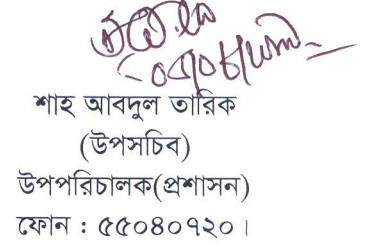 শাহ আবদুল তারিক
(উপসচিব)
উপপরিচালক(প্রশাসন)
ফোন : ৫৫০৪০৭২০।